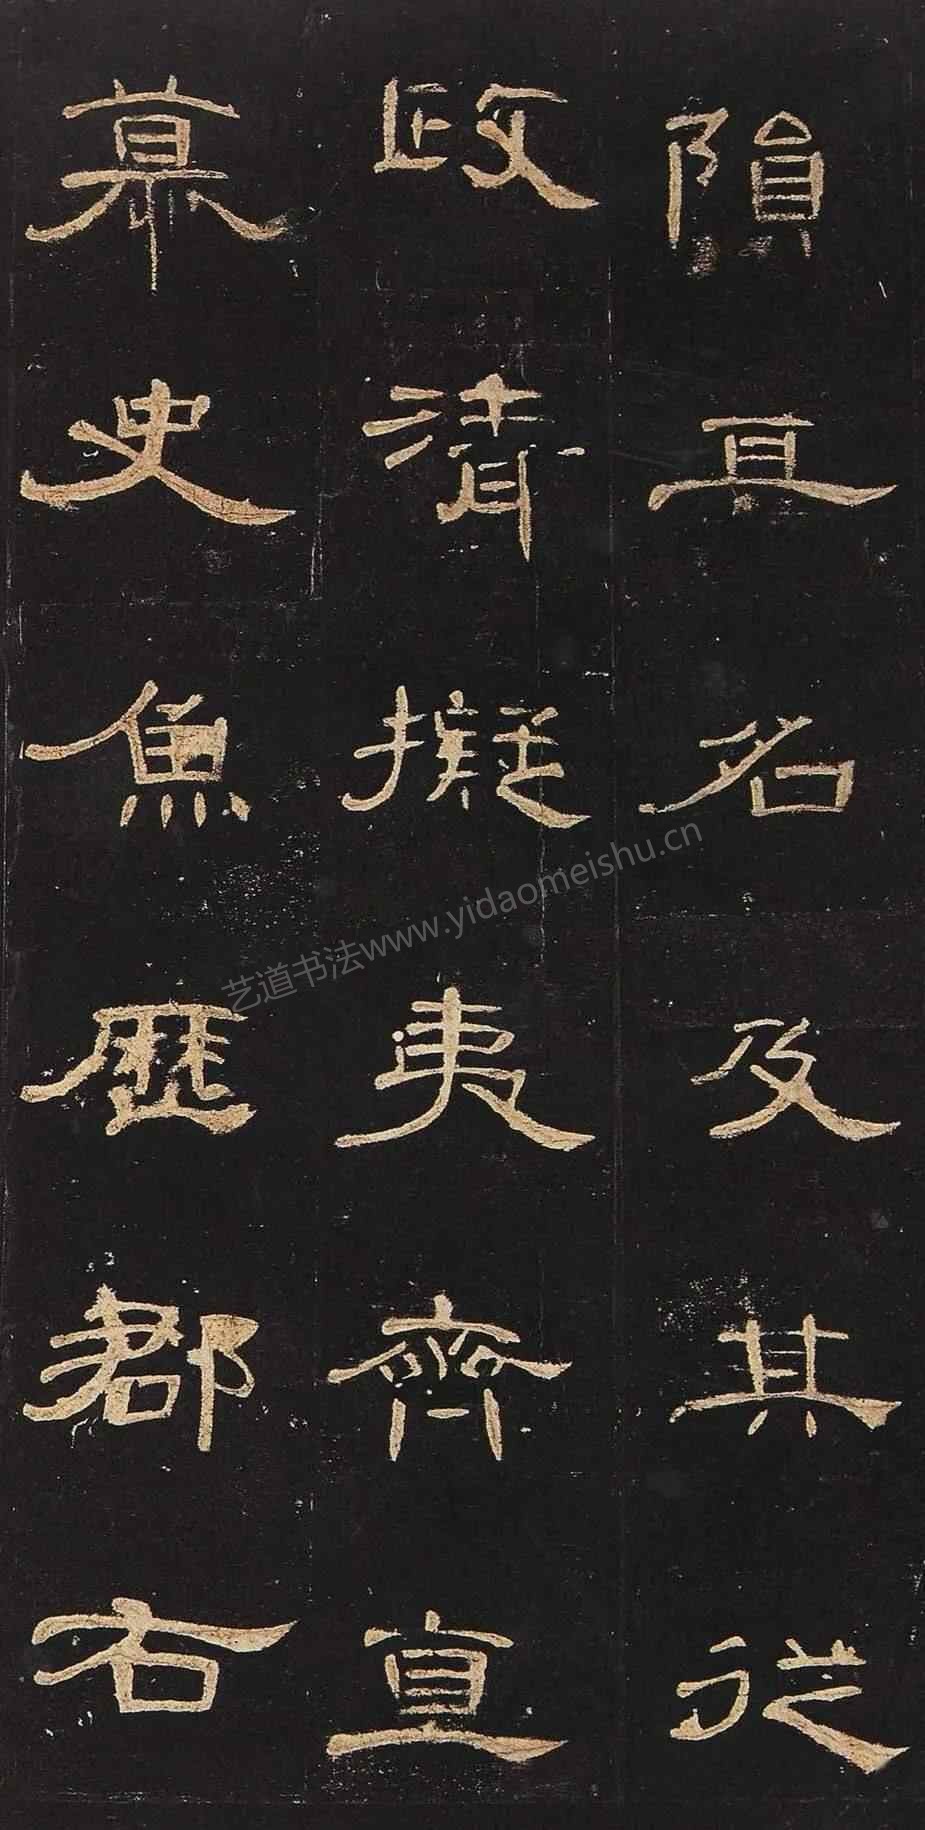 隕其名及其從
政清擬夷齊直
慕史魚歷郡右
艺道书法www.yidaomeishu.cn